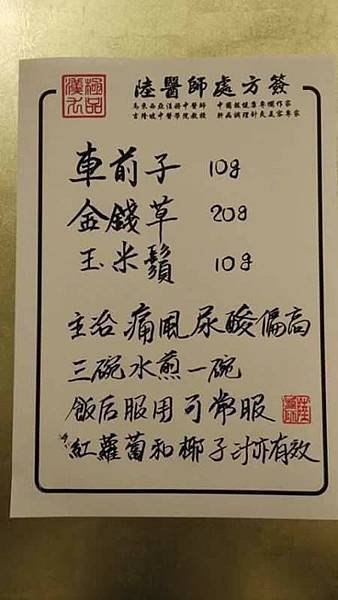 極品
漢方
陸醫師處方簽
馬來西亞注冊中醫師 中國報健康專欄作家
吉隆坡中醫學院教授 新品調理針灸美容專家
車前子 10g
金錢草 20g
玉米鬚 10g
主治痛風尿酸偏高
三碗水煎一碗
飯后服用可常服
紅蘿蔔和椰子汁亦有效